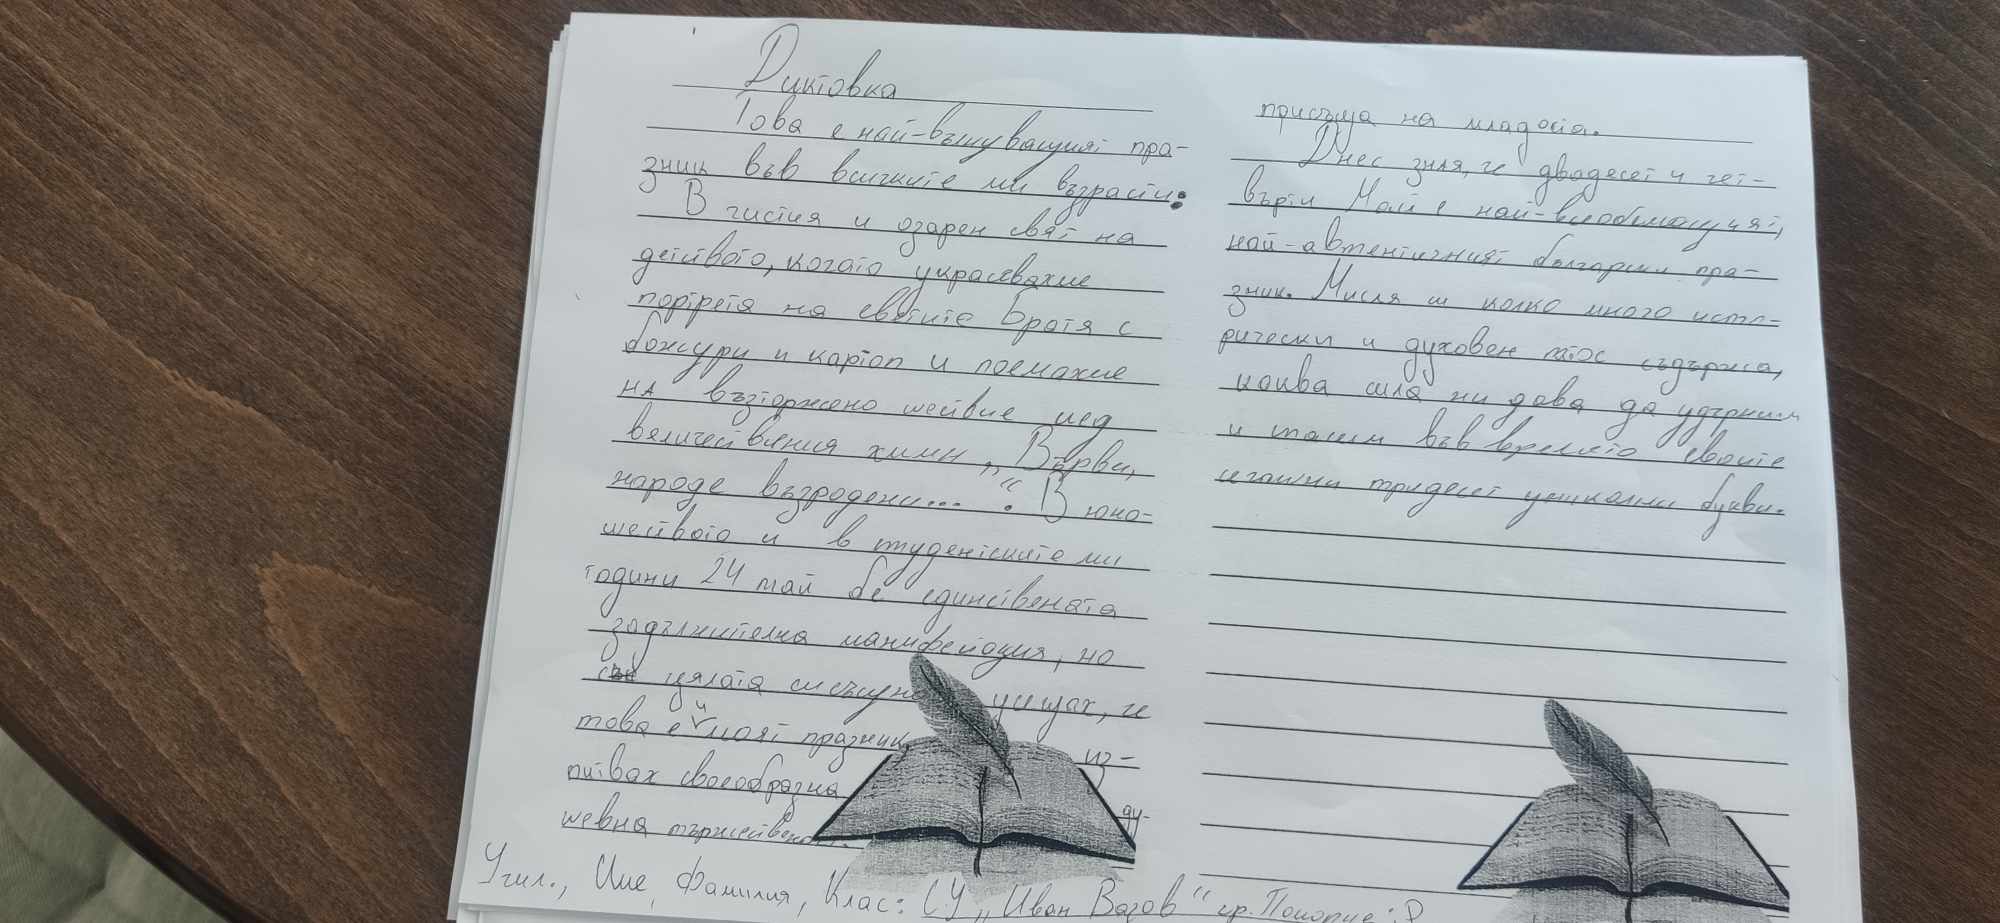 Диктовка
Това е най-вълнуващият пра-
зник във всичките ми възрасти:
В чистия и озарен свят на
детството, когато украсявахме
портрета на светите братя с
божури и картоп и поемахме
на възторжено шествие под
величествения химн „Върви,
народе възродени...“. В юно-
шеството и в студентските ми
години 24 май бе единствената
задължителна манифестация, но
с цялата си същност усещах, че
това е и моят празник,
из-
питвах своеобразна
ду-
шевна тържественост
присъща на младостта.
Днес зная, че двадесет и чет-
върти Май е най-всеобемащият,
най-автентичният български пра-
зник. Мисля си колко много исто-
рически и духовен патос съдържа,
каква сила ни дава да удържим
и спасим във времето своите
сегашни тридесет уникални букви.
Учил., Име, Фамилия, Клас: СУ „Иван Вазов“ гр. Поморие